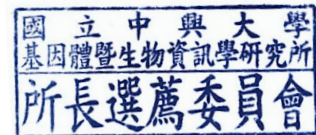 國立中興大學
基因體暨生物資訊學研究所
所長選薦委員會